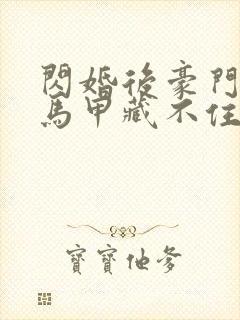 閃婚後豪門
馬甲藏不住
寶寶他爹